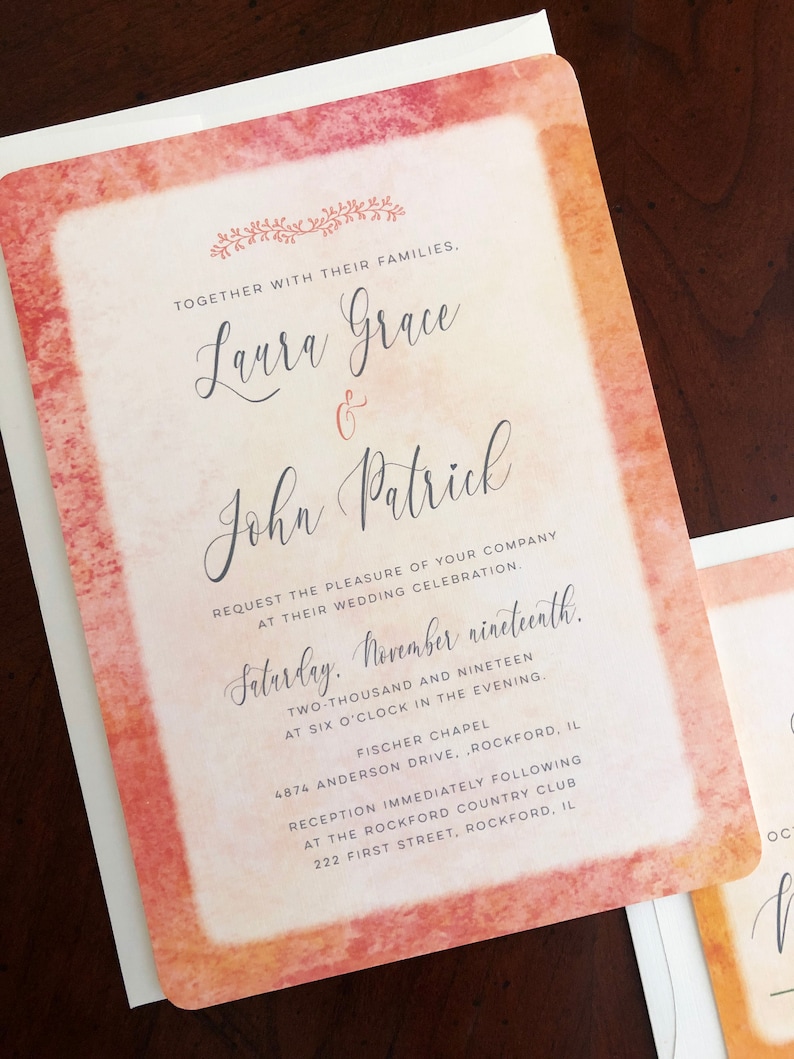 TOGETHER WITH THEIR FAMILIES,
Laura Grace
&
John Patrick
REQUEST THE PLEASURE OF YOUR COMPANY
AT THEIR WEDDING CELEBRATION.
Saturday, November nineteenth,
TWO-THOUSAND AND NINETEEN
AT SIX O'CLOCK IN THE EVENING.
FISCHER CHAPEL
4874 ANDERSON DRIVE, ,ROCKFORD, IL
RECEPTION IMMEDIATELY FOLLOWING
AT THE ROCKFORD COUNTRY CLUB
222 FIRST STREET, ROCKFORD, IL
OCT